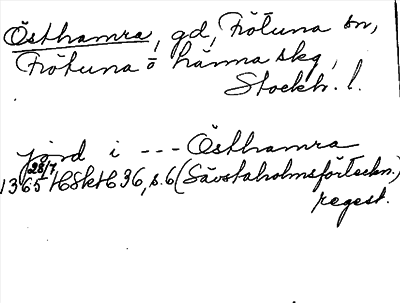 Östhamra, gd, Frötuna sn,
Frötuna o Länna skg,
Stockh. l.
jord i --- Östhamra
1365 28/7 HSkH 36, s. 6 (Sävstaholmsförteckn.)
regest.